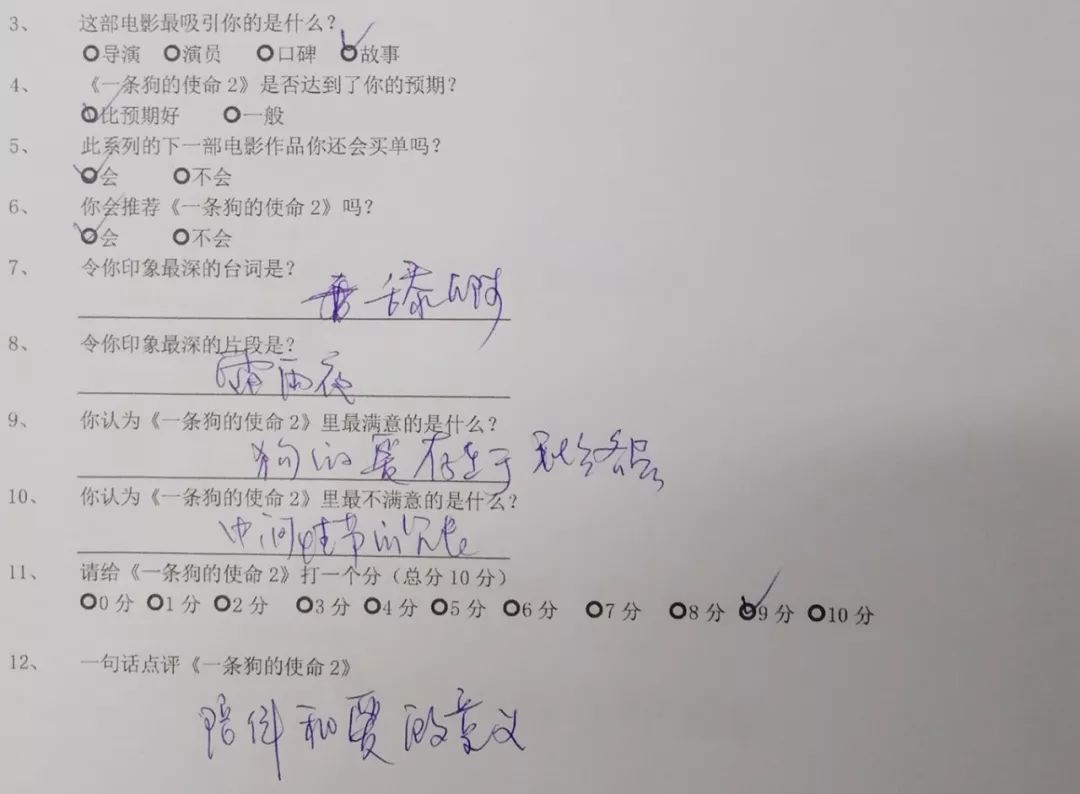 3、 这部电影最吸引你的是什么？
导演 演员 口碑 故事
4、 《一条狗的使命 2》是否达到了你的预期？
比预期好 一般
5、 此系列的下一部电影作品你还会买单吗？
会 不会
6、 你会推荐《一条狗的使命 2》吗？
会 不会
7、 令你印象最深的台词是？
舔
8、 令你印象最深的片段是？
雨夜
9、 你认为《一条狗的使命 2》里最满意的是什么？
狗的爱存在于
10、 你认为《一条狗的使命 2》里最不满意的是什么？
中间情节的冗长
11、 请给《一条狗的使命 2》打一个分（总分 10 分）
0 分 1 分 2 分 3 分 4 分 5 分 6 分 7 分 8 分 9 分 10 分
12、 一句话点评《一条狗的使命 2》
陪伴和爱的意义